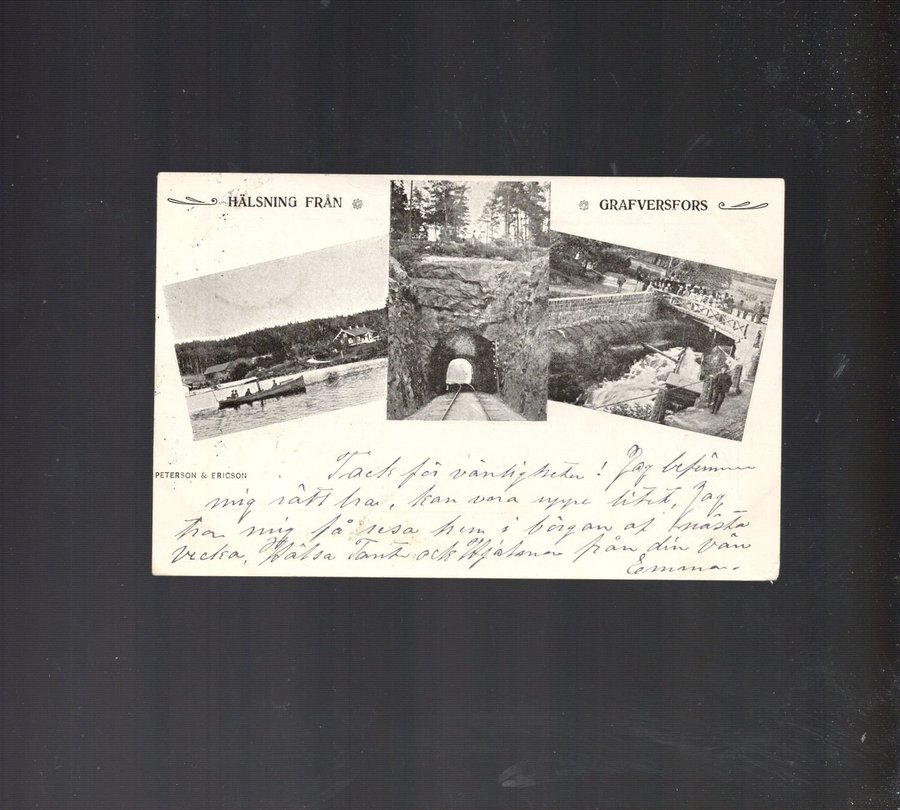 HÄLSNING FRÅN
GRAFVERSFORS
PETERSON & ERICSON
Tack för vänligheten! Jag befinner
mig rätt bra, kan vara uppe litet, Jag
tror mig få resa hem i början af nästa
vecka, Hälsa Tant och Hjalmar från din vän
Emma.